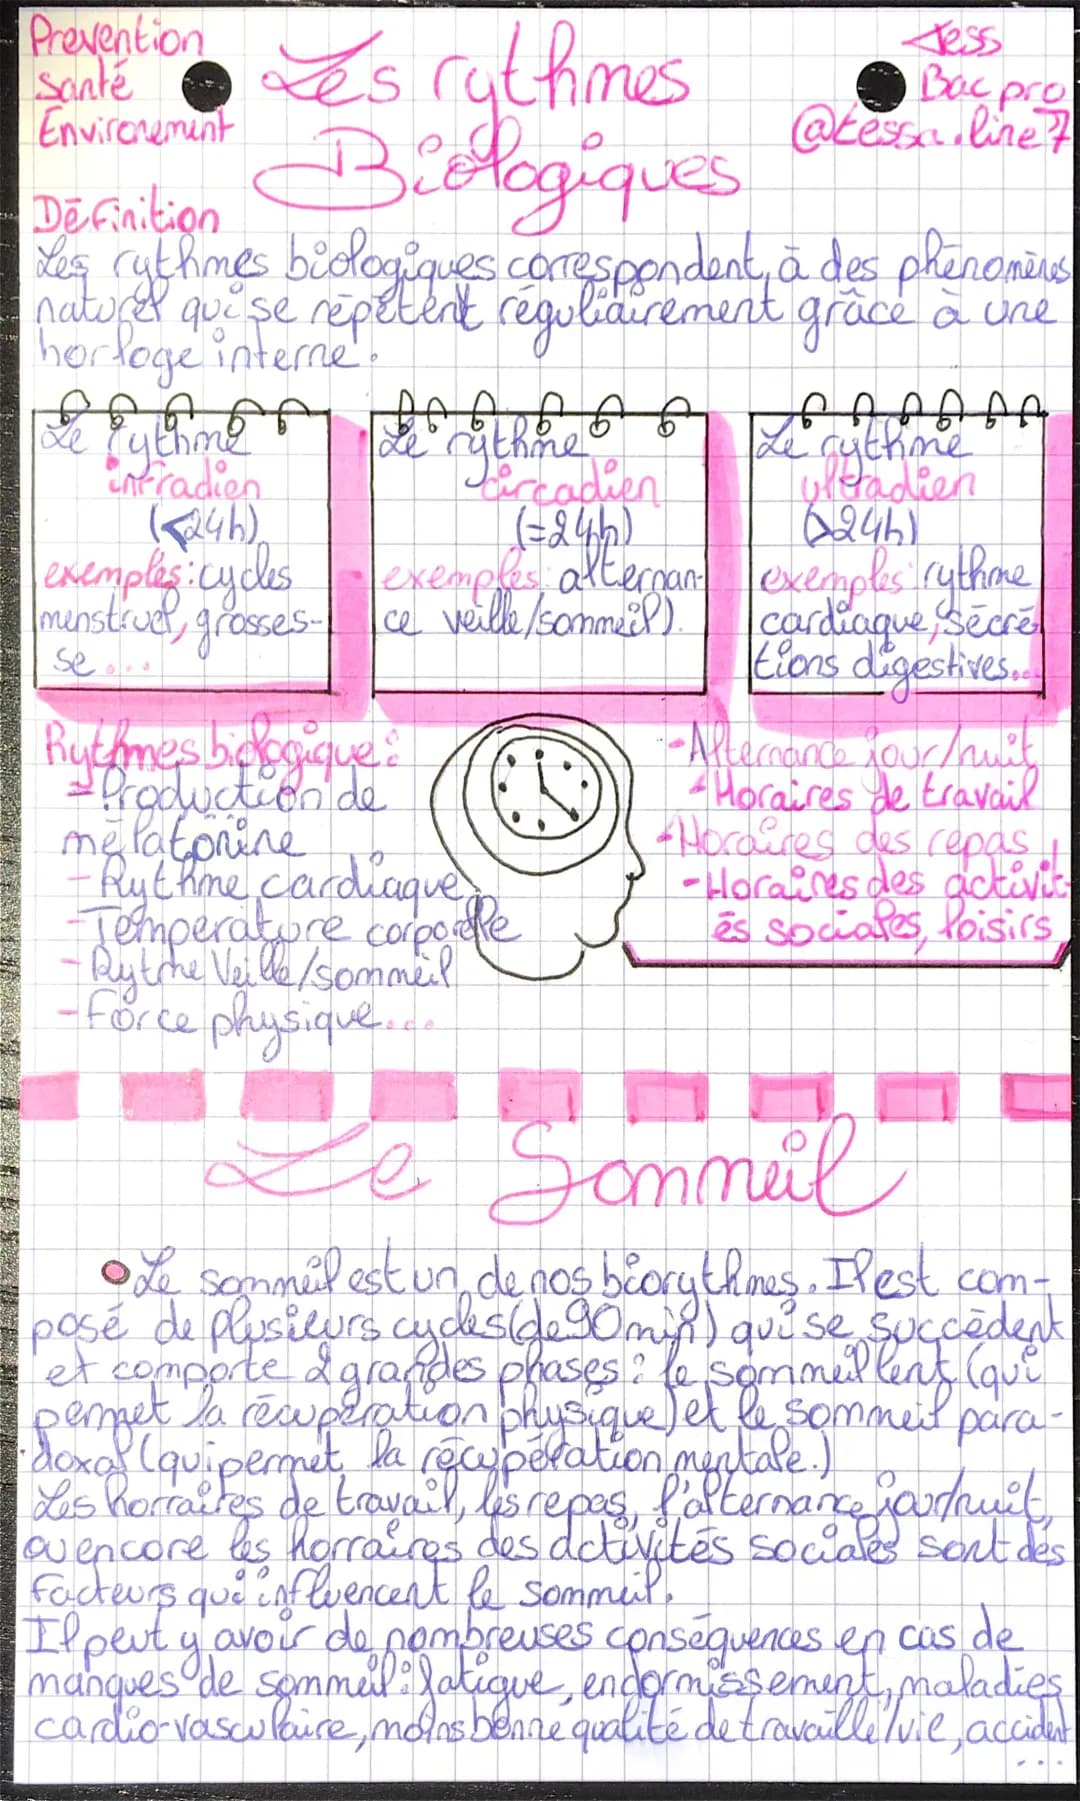 Prevention
santé
Environement
Les rythmes
Biologiques
Tess
Bac pro
@tessa.line7
Définition
Les rythmes biologiques correspondent, à des phénomènes
naturel qui se répètent réguliairement grâce à une
horloge interne.
Le rythme
infradien
(<24h)
exemples: cycles
menstruel, grosses-
se...
Le rythme
circadien
(=24h)
exemples: alternan-
ce veille/sommeil).
Le rythme
ultradien
(>24h)
exemples: rythme
cardiaque, sécré
tions digestives...
Rythmes biologique:
- Production de
mélatonine
- Rythme cardiaque
- Temperature corporelle
- Rytme Veille/sommeil
- Force physique...
- Alternance jour/nuit
- Horaires de travail
- Horaires des repas
- Horaires des activit-
és sociales, loisirs
Le Sommeil
• Le sommeil est un de nos biorythmes. Il est com-
posé de plusieurs cycles (de 90 min) qui se succèdent
et comporte 2 grandes phases: le sommeil lent (qui
permet la récupération physique) et le sommeil para-
doxal (qui permet la récupération mentale.)
Les horraires de travail, les repas, l'alternance jour/nuit,
ou encore les horraires des activités sociales sont des
facteurs qui influencent le sommeil.
Il peut y avoir de nombreuses conséquences en cas de
manques de sommeil: fatigue, endormissement, maladies
cardio-vasculaire, moins bonne qualité de travaille/vie, accident
...